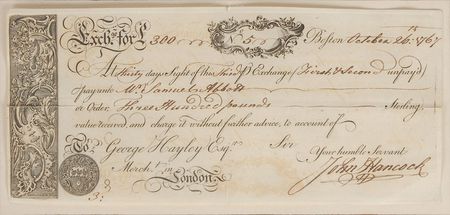 Exchª. for £300
No. 5
Boston October 26th 1767
At thirty days Sight of this Third of Exchange First & Second unpaid
pay unto Mr. Samuel Abbott
or Order, Three Hundred pounds Sterling,
value received, and charge it without further advice, to account of
To George Hayley Esqr. Sir Your humble Servant
Mercht. in London
John Hancock
3: